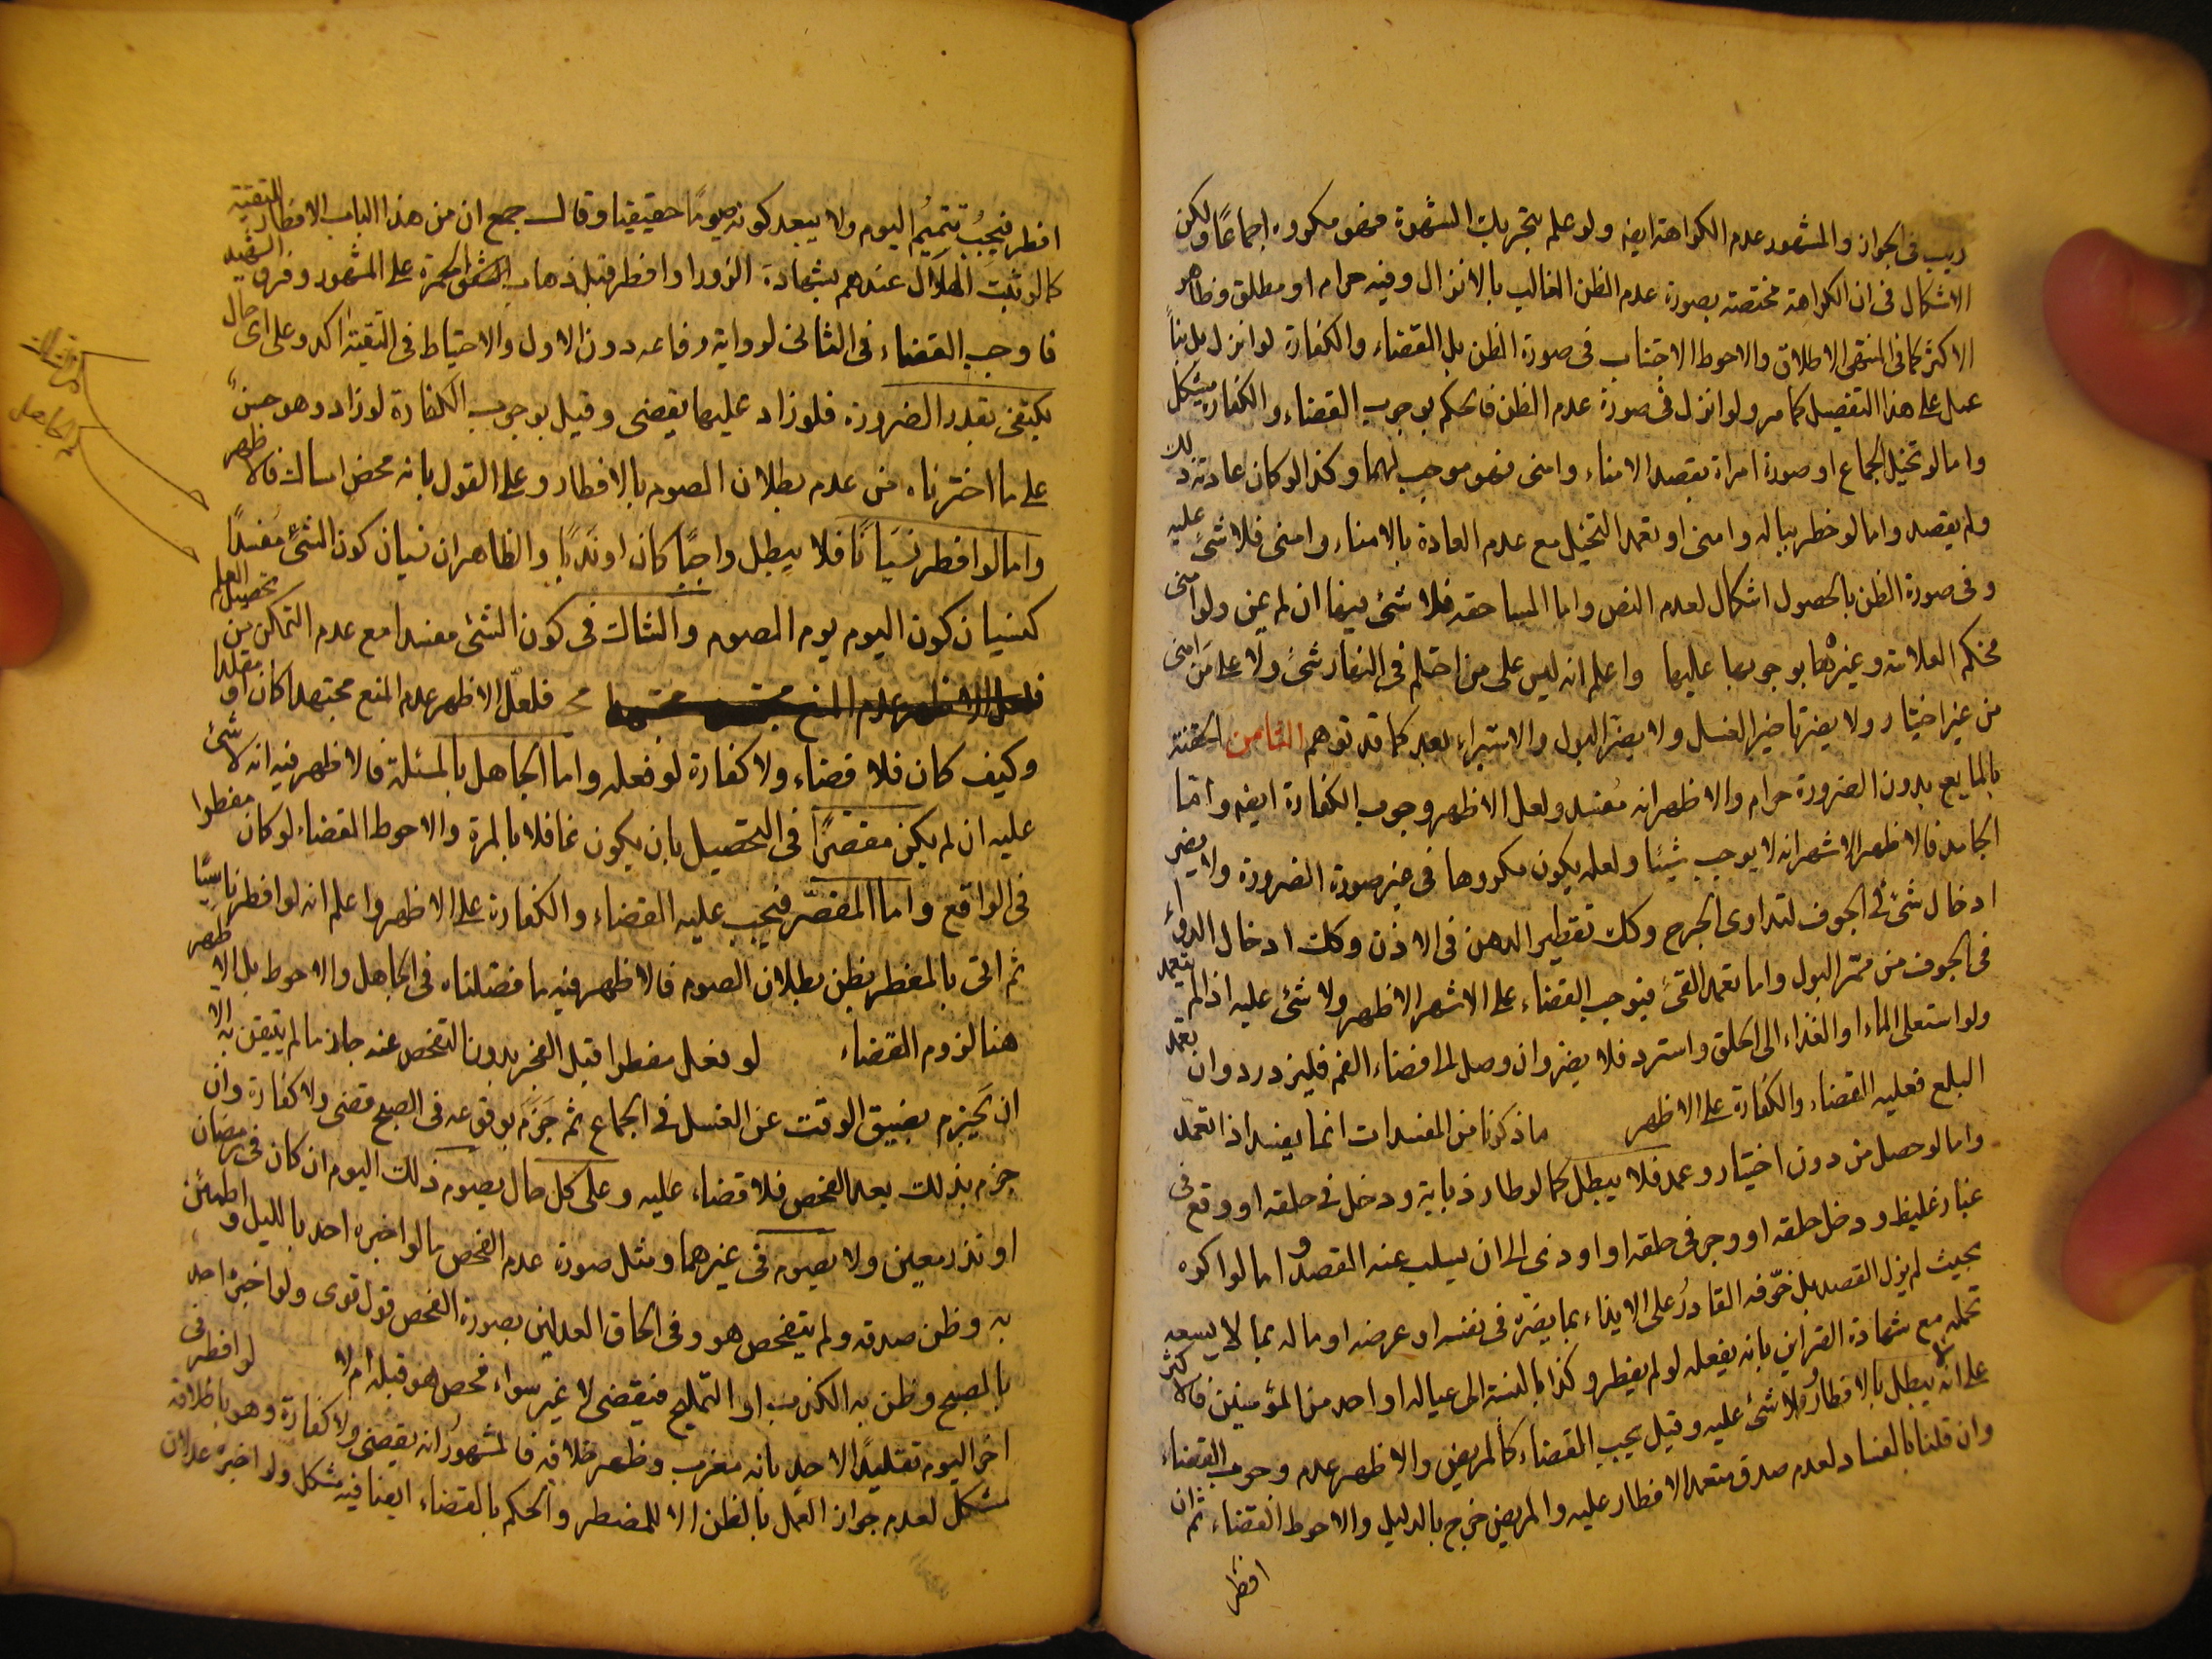 ريب فى الجواز والمشهور عدم الكراهة ايضا ولو علم بتحريك الشهوة فهو مكروه اجماعًا ولكن
الاشكال فى ان الكراهة مختصة بصورة عدم الظن الغالب بالانزال وفيه حرام او مطلق وظاهر
الاكثر كما فى المنتهى الاطلاق والاحوط الاجتناب فى صورة الظن بل القضاء والكفارة لو انزل بل بناً
عمل على هذا التفصيل كما مر ولو انزل فى صورة عدم الظن فالحكم بوجوب القضاء والكفارة مشكل
واما لو تخيل الجماع او صورة امراة بقصد الامناء وامنى فهو موجب لهما وكذا لو كان عادته ذلك
ولم يقصد واما لو خطر بباله وامنى او تعمد التخيل مع عدم العادة بالامناء وامنى فلا شئ عليه
وفى صورة الظن بالحصول اشكال لعدم النص واما المساحقه فلا شئ فيها ان لم يمن ولو امنى
فحكم العلامة وغيره بوجوبهما عليهما واعلم انه ليس على من احتلم فى النهار شئ ولا على من امنى
من غير اختيار ولا يضر تاخير الغسل ولا يضر البول والاستبراء بعد كما قد توهم الثامن الحقنة
بالمايع بدون الضرورة حرام والاظهر انه مفسد ولعل الاظهر وجوب الكفارة ايضا واما
الجامد فالاظهر الاشهر انه لا يوجب شيئا ولعله يكون مكروها فى غير صورة الضرورة ولا يضر
ادخال شئ فى الجوف لتداوى الجرح وكك تقطير الدهن فى الاذن وكك ادخال الدواء
فى الجوف من ممر البول واما تعمد القئ فيوجب القضاء على الاشهر الاظهر ولا شئ عليه اذا لم يتعمد
ولو استعلى الماء او الغذاء الى الحلق واسترد فلا يضر وان وصل الى فضاء الفم فليزدرد وان تعمد
البلع فعليه القضاء والكفارة على الاظهر ما ذكرنا من المفسدات انما يفسد اذا تعمد
واما لو حصل من دون اختيار وعمد فلا يبطل كما لو طار ذبابة ودخل فى حلقه او وقع فى
غبار غليظ ودخل حلقه او وجر فى حلقه او اوذى الى ان يسلب عنه القصد واما لو اكره
بحيث لم يزل القصد بل خوّفه القادرُ على الايذاء بما يضره فى نفسه او عرضه او ماله بما لا يسعه
تحمله مع شهادة القراين بانه يفعله لو لم يفطر وكذا بالنسبة الى عياله او احد من المؤمنين فالاكثر
على انه لا يبطل بالافطار ولا شئ عليه وقيل يجب القضاء كالمريض والاظهر عدم وجوب القضاء
وان قلنا بالفساد لعدم صدق متعمد الافطار عليه والمريض خرج بالدليل والاحوط القضاء ثم ان
افطر
افطر فيجبُ تتميمُ اليوم ولا يبعد كونه صومًا حقيقيا وقال جمع ان من هذا الباب الافطار للتقية
كما لو ثبت الهلال عندهم بشهادة الزور او افطر قبل ذهاب الحمرة على المشهور وفرق الشهيد
فاوجب القضاء فى الثانى لرواية رفاعه دون الاول والاحتياط فى التقية اكد وعلى اى حال
يكتفى بقدر الضرورة فلو زاد عليها يقضى وقيل بوجوب الكفارة لو زاد وهو حسنٌ
على ما اخترناه من عدم بطلان الصوم بالافطار وعلى القول بانه محض امساك فالاظهر
واما لو افطر نسيَانًا فلا يبطل واجبًا كان او ندبًا والظاهر ان نسيان كون الشئ مفسداً
كنسيان كون اليوم يوم الصوم والشاك فى كون الشئ مفسدا مع عدم التمكن من تحصيل العلم
فلعلّ الاظهر عدم المنع مجتهدا كان او مقلدا
وكيف كان فلا قضاء ولا كفارة لو فعله واما الجاهل بالمسئلة فالاظهر فيه انه لا شئ
عليه ان لم يكن مقصّرًا فى التحصيل بان يكون غافلا بالمرة والاحوط القضاء لو كان مفطرا
فى الواقع واما المقصّر فيجب عليه القضاء والكفارة على الاظهر واعلم انه لو افطر ناسيًا
ثم اتى بالمفطر بظن بطلان الصوم فالاظهر فيه ما فصلناه فى الجاهل والاحوط بل الاظهر
هنا لزوم القضاء لو فعل مفطرا قبل الفجر بدون التفحص عنه جاز ما لم يتيقن به الا
ان يَجزِم بضيق الوقت عن الغسل فى الجماع ثم جَزمَ بوقوعه فى الصبح قضى ولا كفارة وان
جزم بذلك بعد الفحص فلا قضاء عليه وعلى كل حال يصوم ذلك اليوم ان كان فى رمضان
او نذر معين ولا يصوم فى غيرهما ومثل صورة عدم الفحص ما لو اخبره احد بالليل واطمئن
به وظن صدقه ولم يتفحص هو وفى الحاق العدلين بصورة الفحص قول قوى ولو اخبره احد
بالصبح وظن به الكذب او التمليح فيقضى لا غير سواء فحص هو قبله ام لا لو افطر فى
اخر اليوم تقليدًا لاحد بانه مغرب وظهر خلافه فالمشهور انه يقضى ولا كفارة وهو باطلاقه
مشكل لعدم جواز العمل بالظن الا للمضطر والحكم بالقضاء ايضا فيه مشكل ولو اخبره عدلان